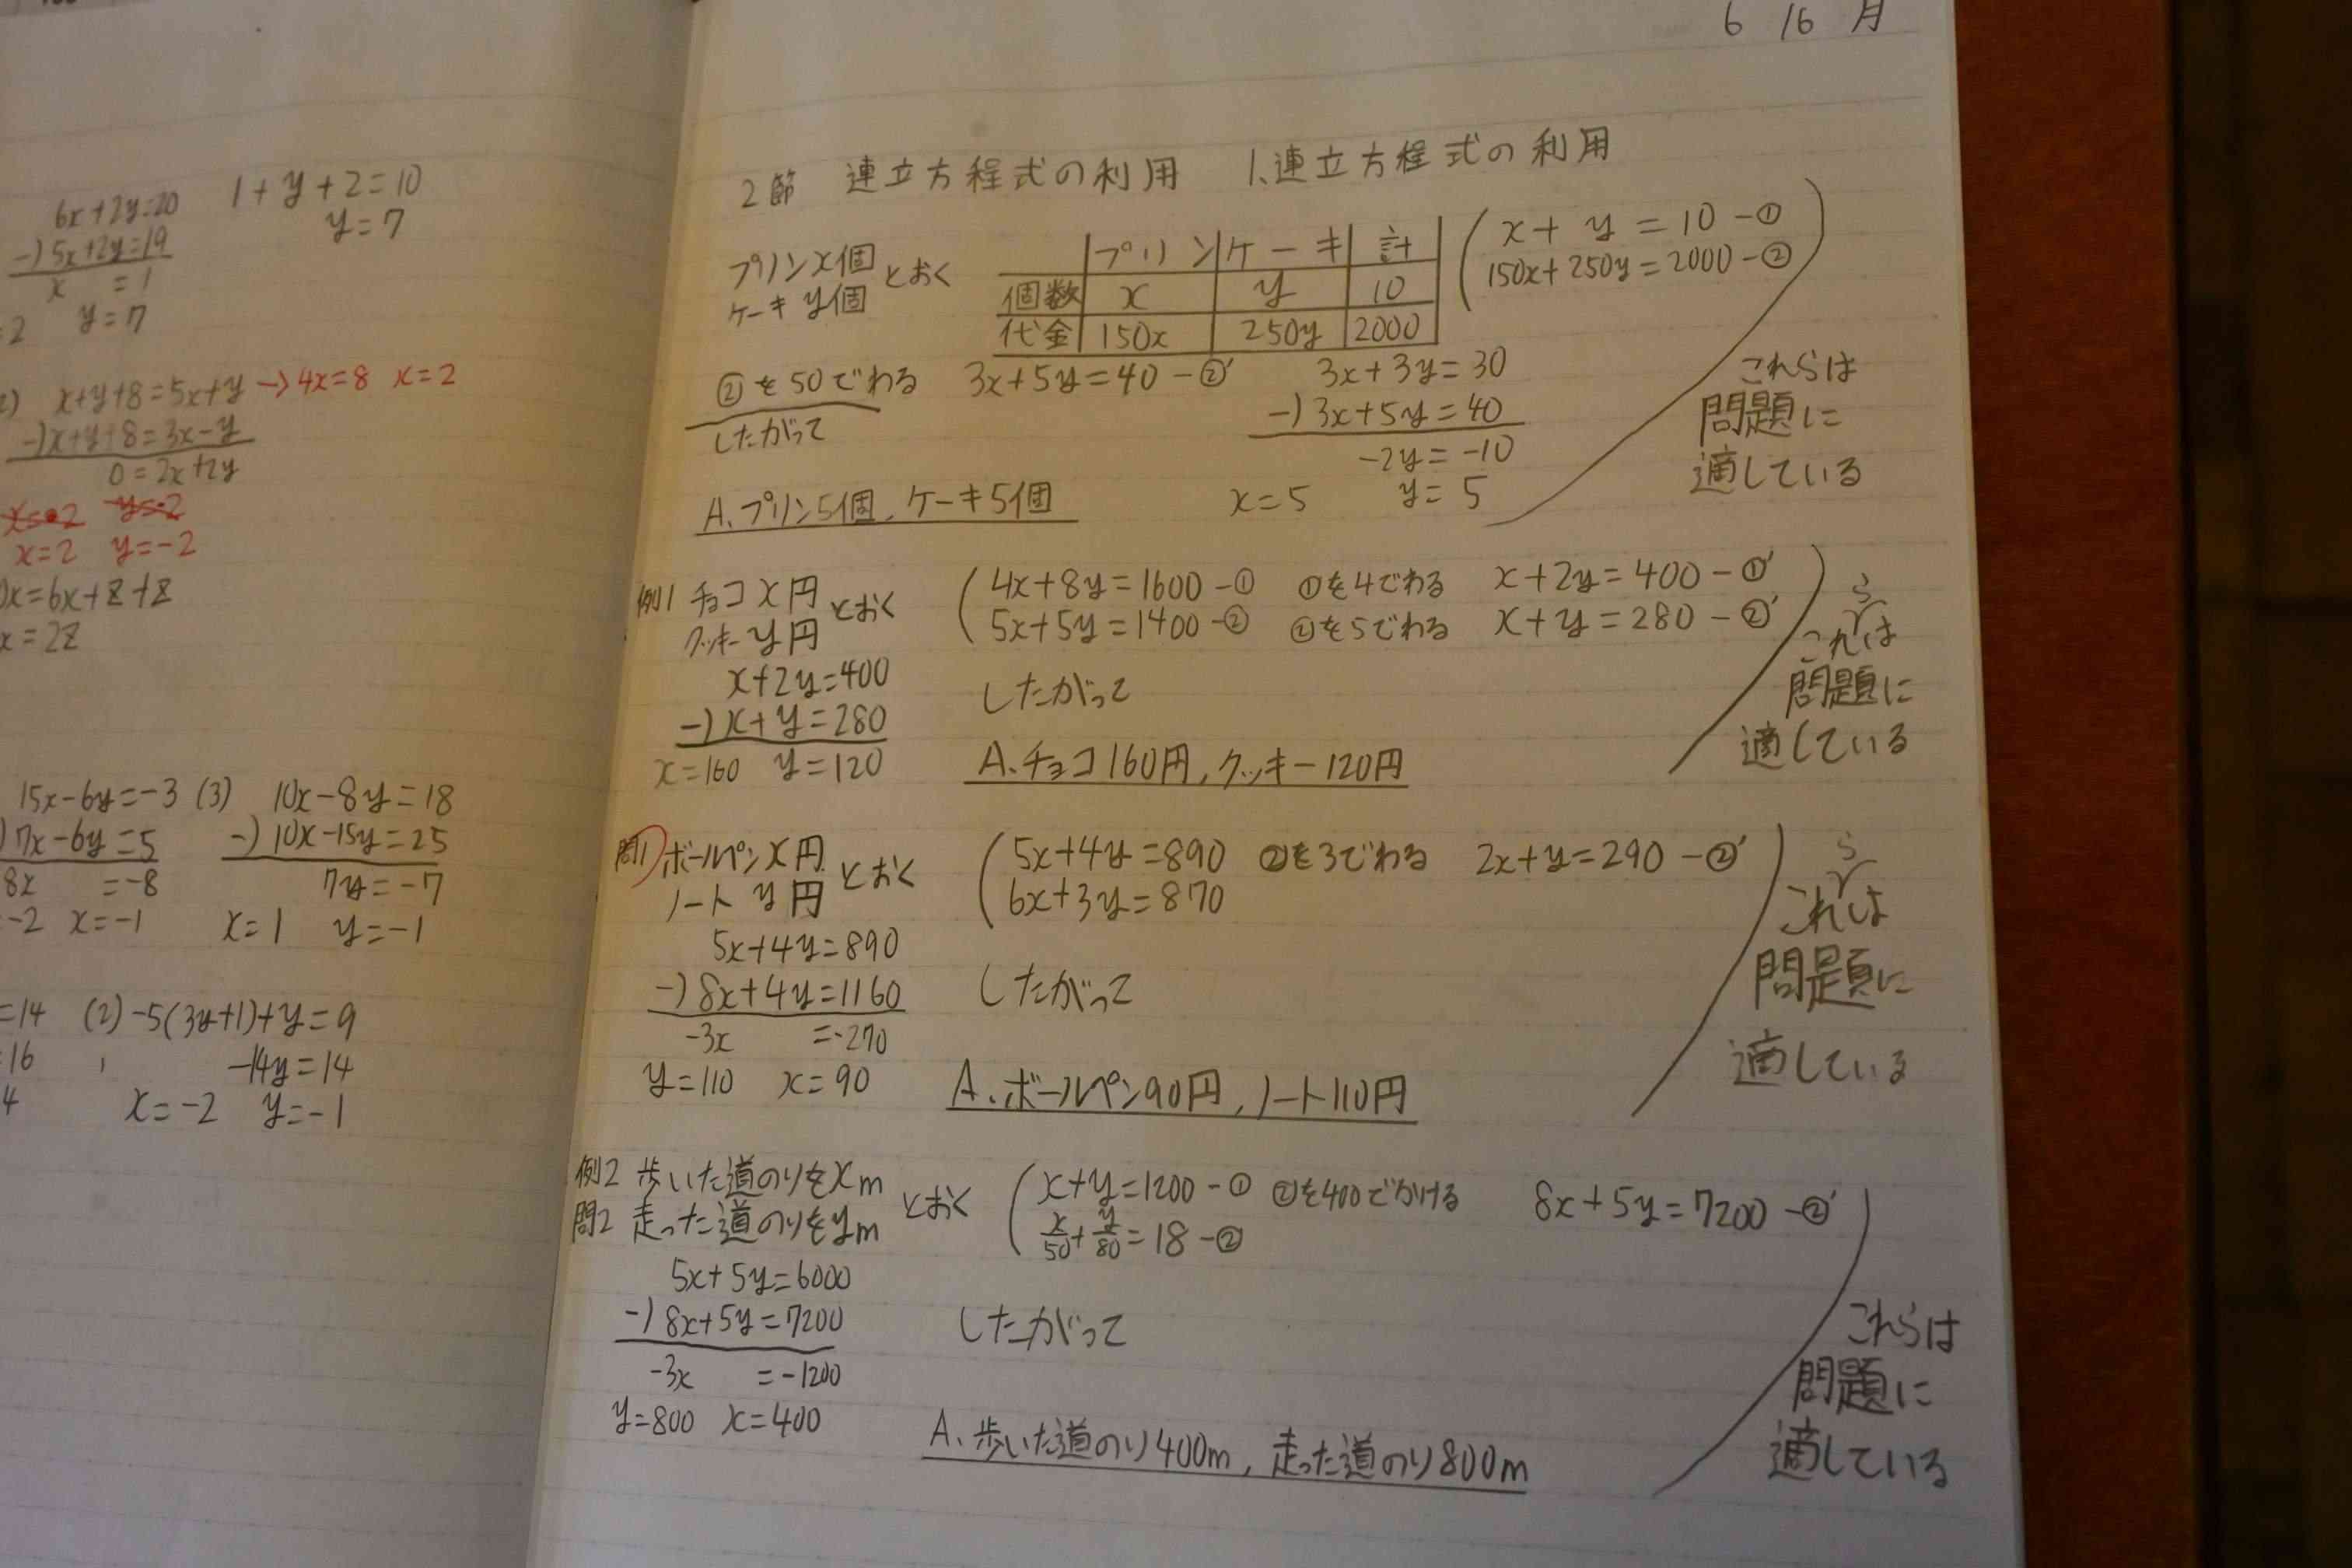 6x+2y=20 1+y+2=10
-) 5x+2y=19 y=7
x =1
=2 y=7
x+y+8=5x+y→4x=8 x=2
-) x+y+8=3x-y
0=2x+2y
x=2 y=-2
x=6x+z+z
x=2z
15x-6y=-3 (3) 10x-8y=18
) 7x-6y=5 -) 10x-15y=25
8x =-8 7y=-7
-2 x=-1 x=1 y=-1
=14 (2) -5(3y+1)+y=9
16 -14y=14
4 x=-2 y=-1
6 16 月
2節 連立方程式の利用 1、連立方程式の利用
プリンx個
ケーキy個 とおく
プリン ケーキ 計
個数 x y 10
代金 150x 250y 2000
x+y=10-①
150x+250y=2000-②
②を50でわる 3x+5y=40-②' 3x+3y=30
-) 3x+5y=40
したがって -2y=-10
A、プリン5個、ケーキ5個 x=5 y=5
これらは
問題に
適している
例1 チョコx円 とおく 4x+8y=1600-① ①を4でわる x+2y=400-①'
クッキーy円 5x+5y=1400-② ②を5でわる x+y=280-②'
x+2y=400 したがって
-) x+y=280
x=160 y=120 A、チョコ160円、クッキー120円
これらは
問題に
適している
問1 ボールペンx円 とおく 5x+4y=890 ②を3でわる 2x+y=290-②'
ノートy円 6x+3y=870
5x+4y=890
-) 8x+4y=1160 したがって
-3x =-270
y=110 x=90 A、ボールペン90円、ノート110円
これらは
問題に
適している
例2 歩いた道のりをxm とおく x+y=1200-① ②を400でかける 8x+5y=7200-②'
問2 走った道のりをym x/50+y/80=18-②
5x+5y=6000
-) 8x+5y=7200 したがって
-3x =-1200
y=800 x=400 A、歩いた道のり400m、走った道のり800m
これらは
問題に
適している